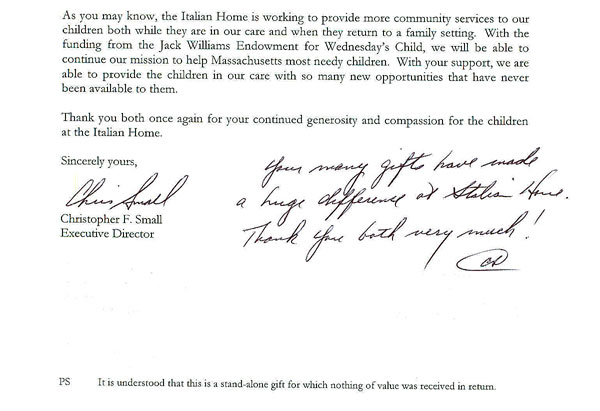 As you may know, the Italian Home is working to provide more community services to our
children both while they are in our care and when they return to a family setting. With the
funding from the Jack Williams Endowment for Wednesday's Child, we will be able to
continue our mission to help Massachusetts most needy children. With your support, we are
able to provide the children in our care with so many new opportunities that have never
been available to them.
Thank you both once again for your continued generosity and compassion for the children
at the Italian Home.
Sincerely yours,
Chris Small
Christopher F. Small
Executive Director
Your many gifts have made
a huge difference at Italian Home.
Thank you both very much!
PS It is understood that this is a stand-alone gift for which nothing of value was received in return.